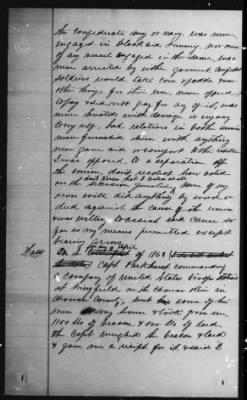 the Confederate army or navy. was never
engaged in blockade running, nor were
of any vessel engaged in the same, was
never arrested by either government, Confederate
soldiers would take corn & fodder & some
other things for their use, never offered
to pay & did not pay for any of it, was
never threatened with damage or injury
to myself. had relations in both armies
never furnished them with anything
nor gave aid or comfort to the rebellion
I was opposed to a separation of
the union, dont recollect how voted
on the secession question, None of my
own will did anything by word or
deed against the cause of the union
& was willing to assist said cause so
far as my means permitted except
bearing arms.
of 1863
Capt Parkhurst commanding
a Company of United States troops stationed
at Wingfield on the Chowan River in
Chowan County, sent some of his
men to my house & took from me
1100 lbs of bacon, & 200 lbs of lard,
the Capt weighed the bacon & lard
& gave me a receipt for it, & said I